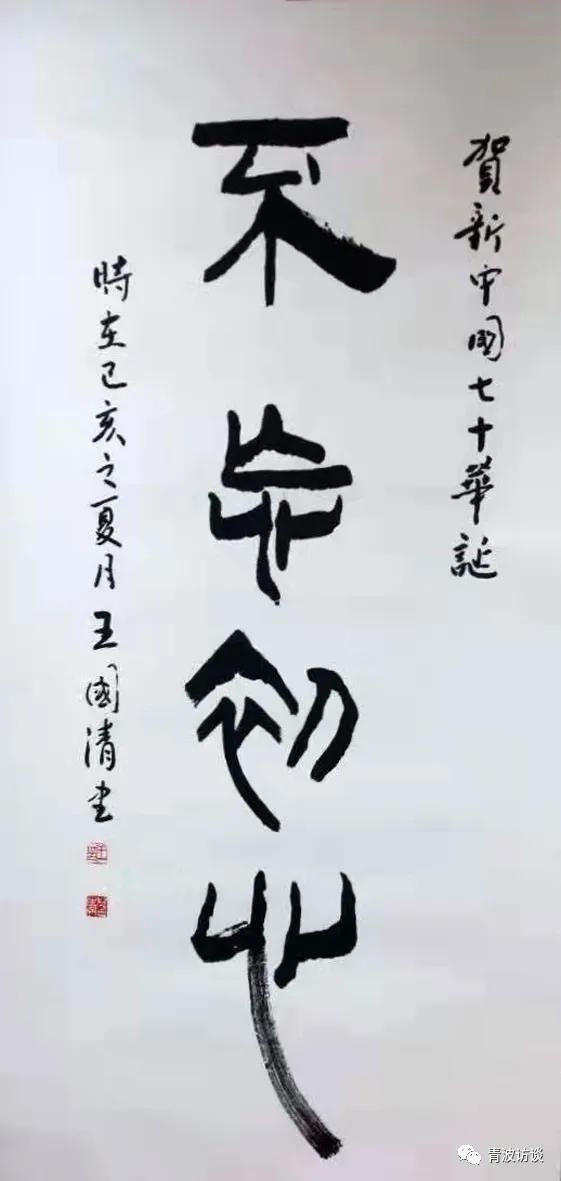 賀新中國七十華誕
不忘初心
時在己亥之夏月王國清书
青波访谈